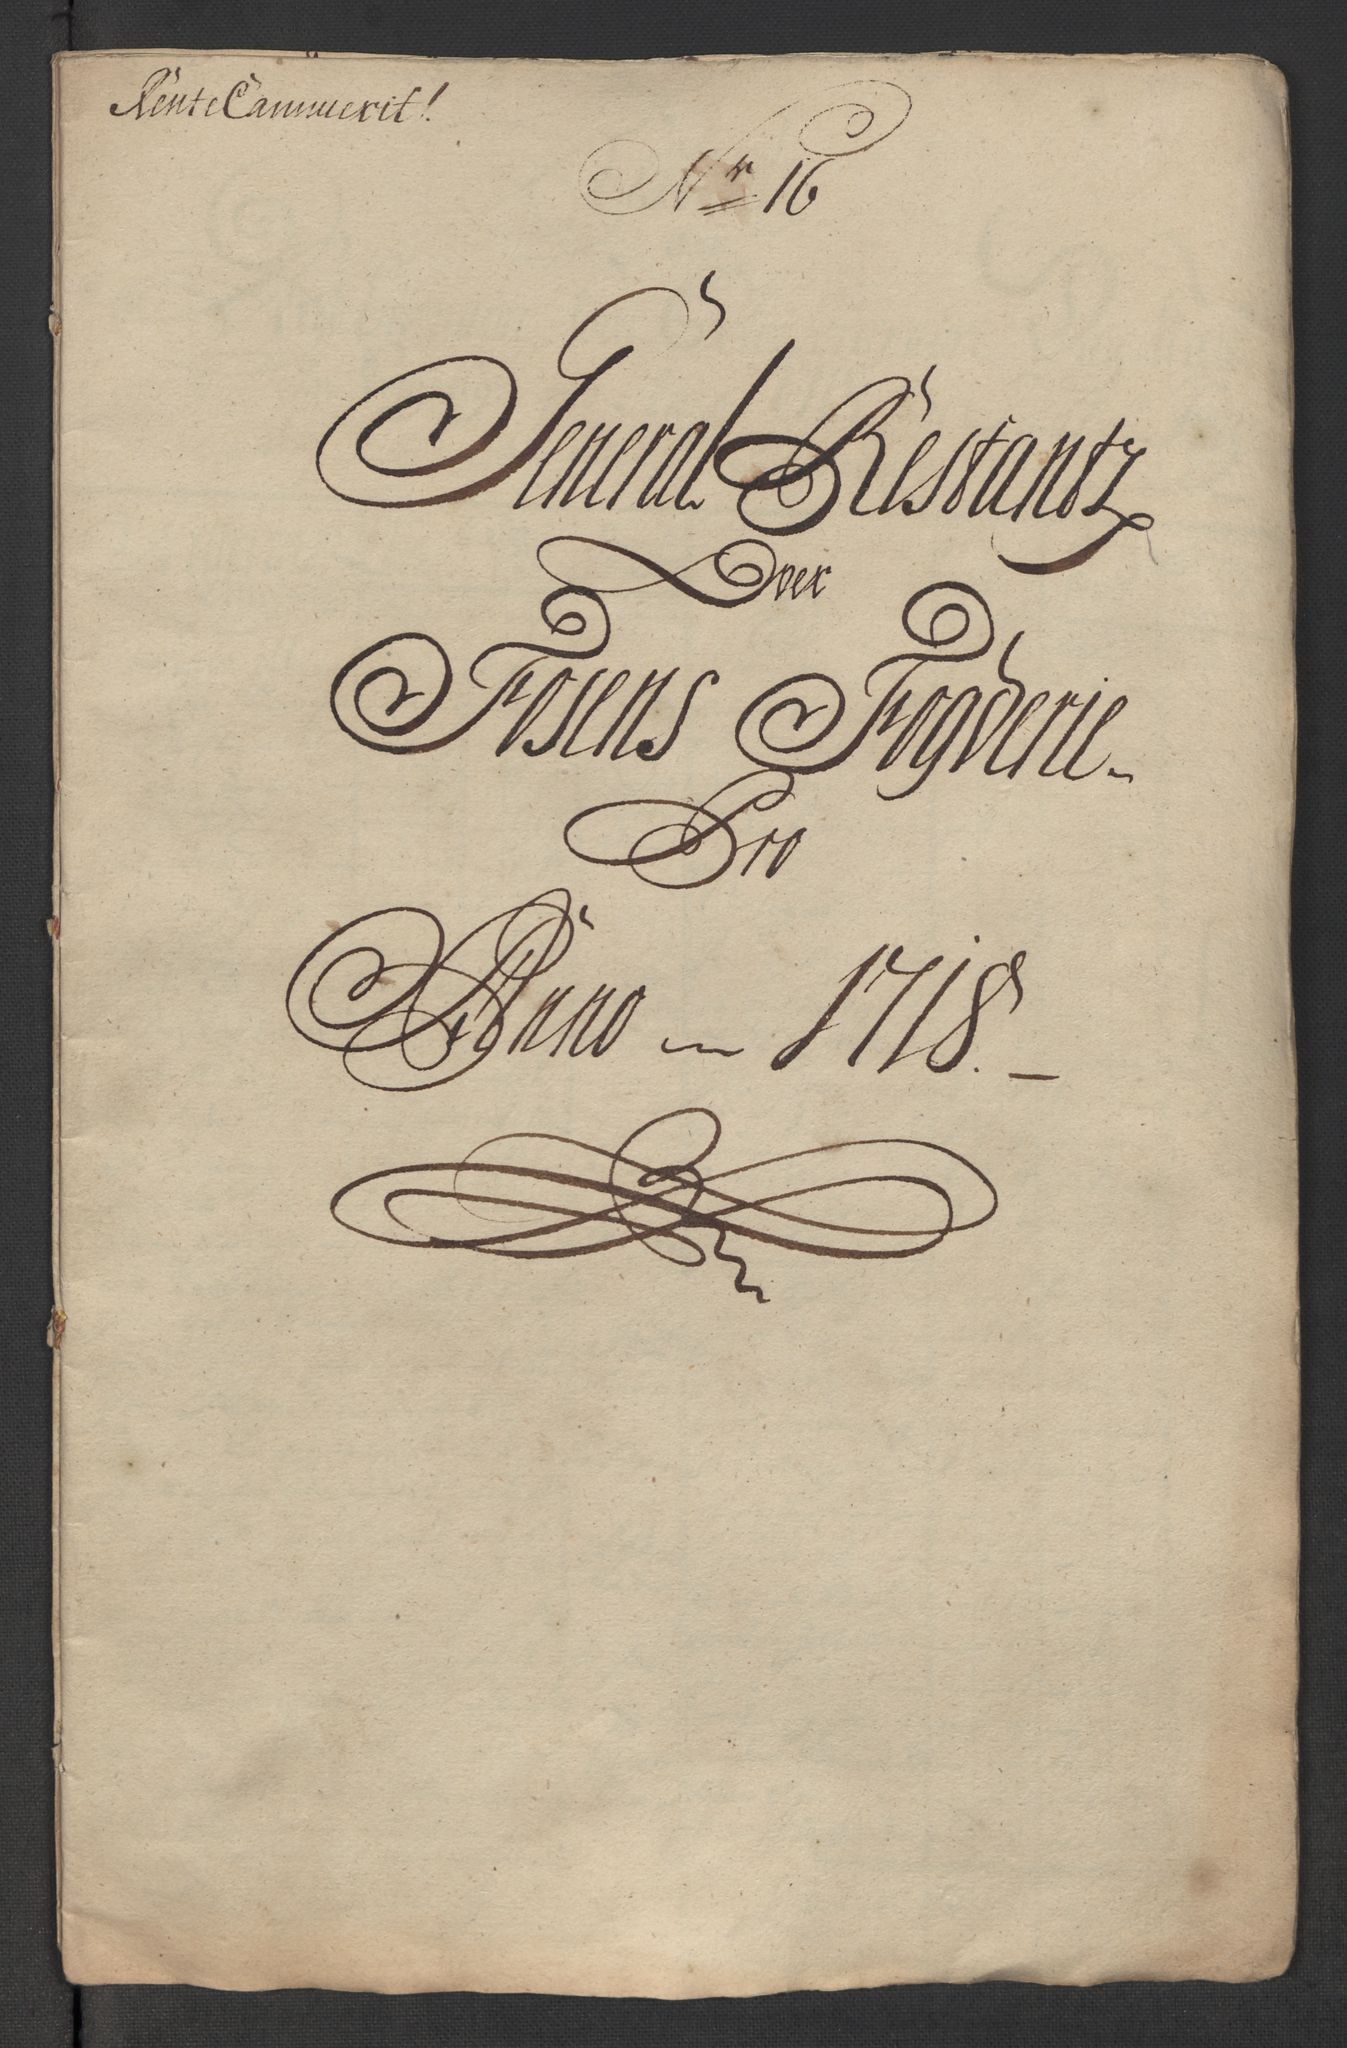 RenteCammerit!
Nr 16
General Restantz
Over
Fosens Fogderie
Pro
Anno 1718.